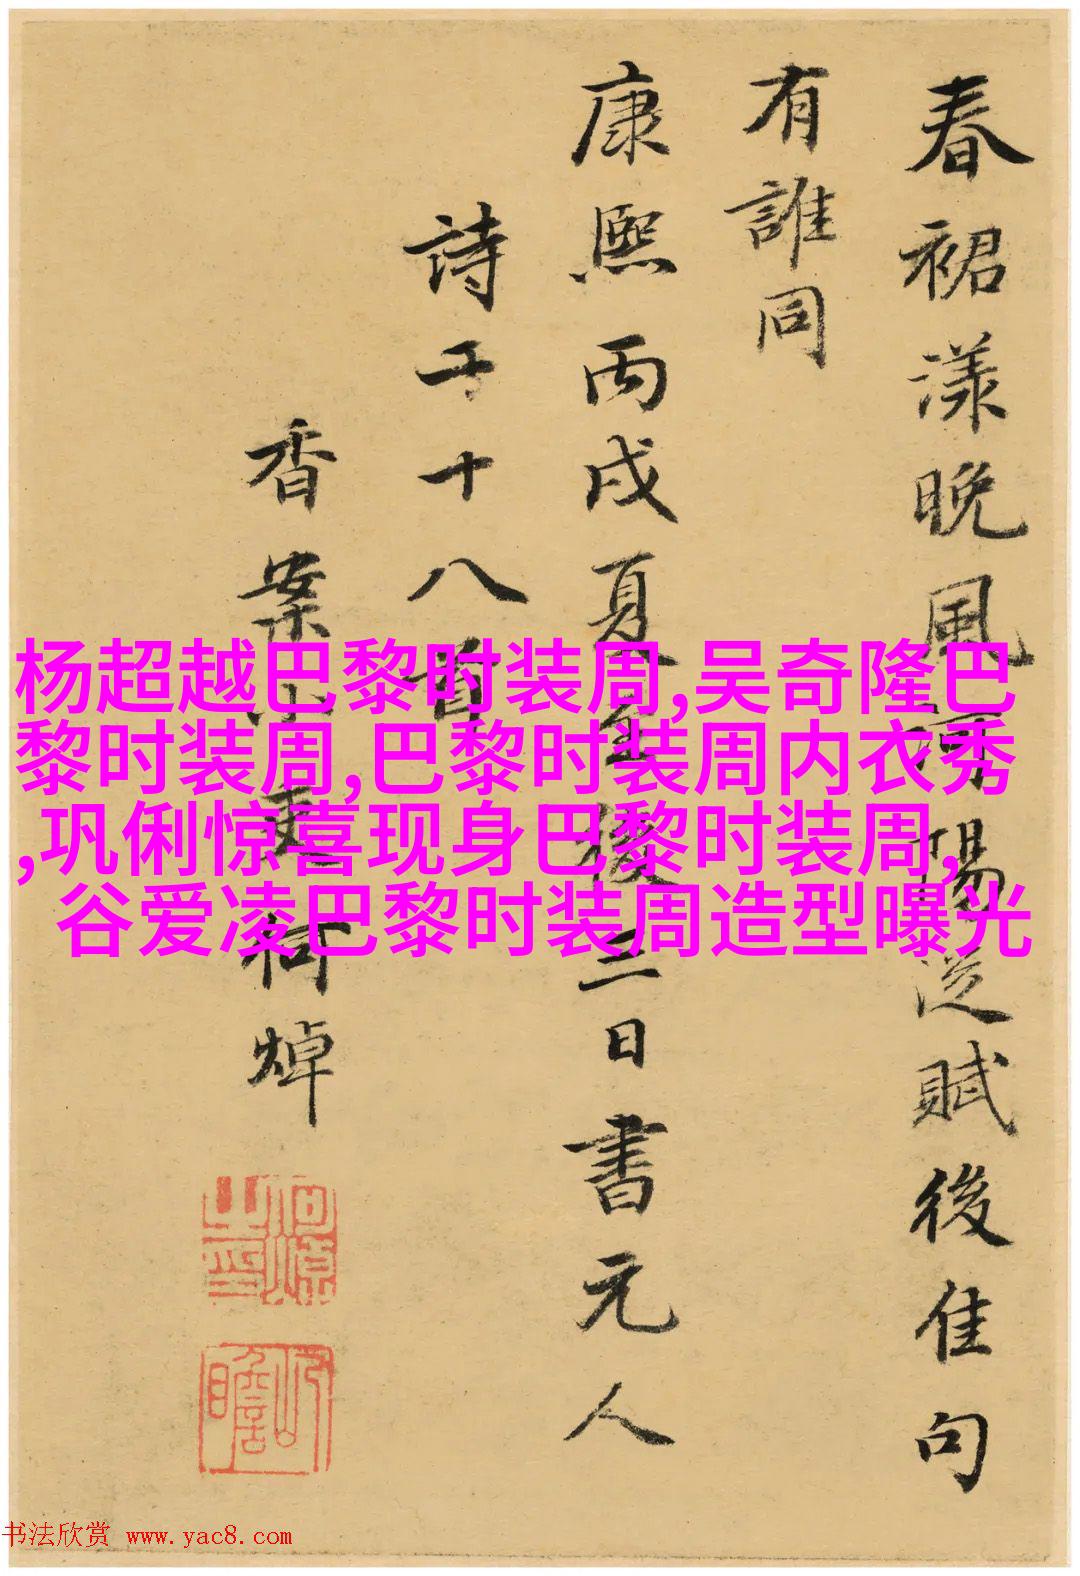 春裙漾晚風河陽從賦後佳句
有誰同
康熙丙戌夏至後三日書元人
詩二十八首
香案小吏何焯
杨超越巴黎时装周,吴奇隆巴
黎时装周,巴黎时装周内衣秀
,巩俐惊喜现身巴黎时装周,
谷爱凌巴黎时装周造型曝光
何焯之印
屺瞻
书法欣赏 www.yac8.com